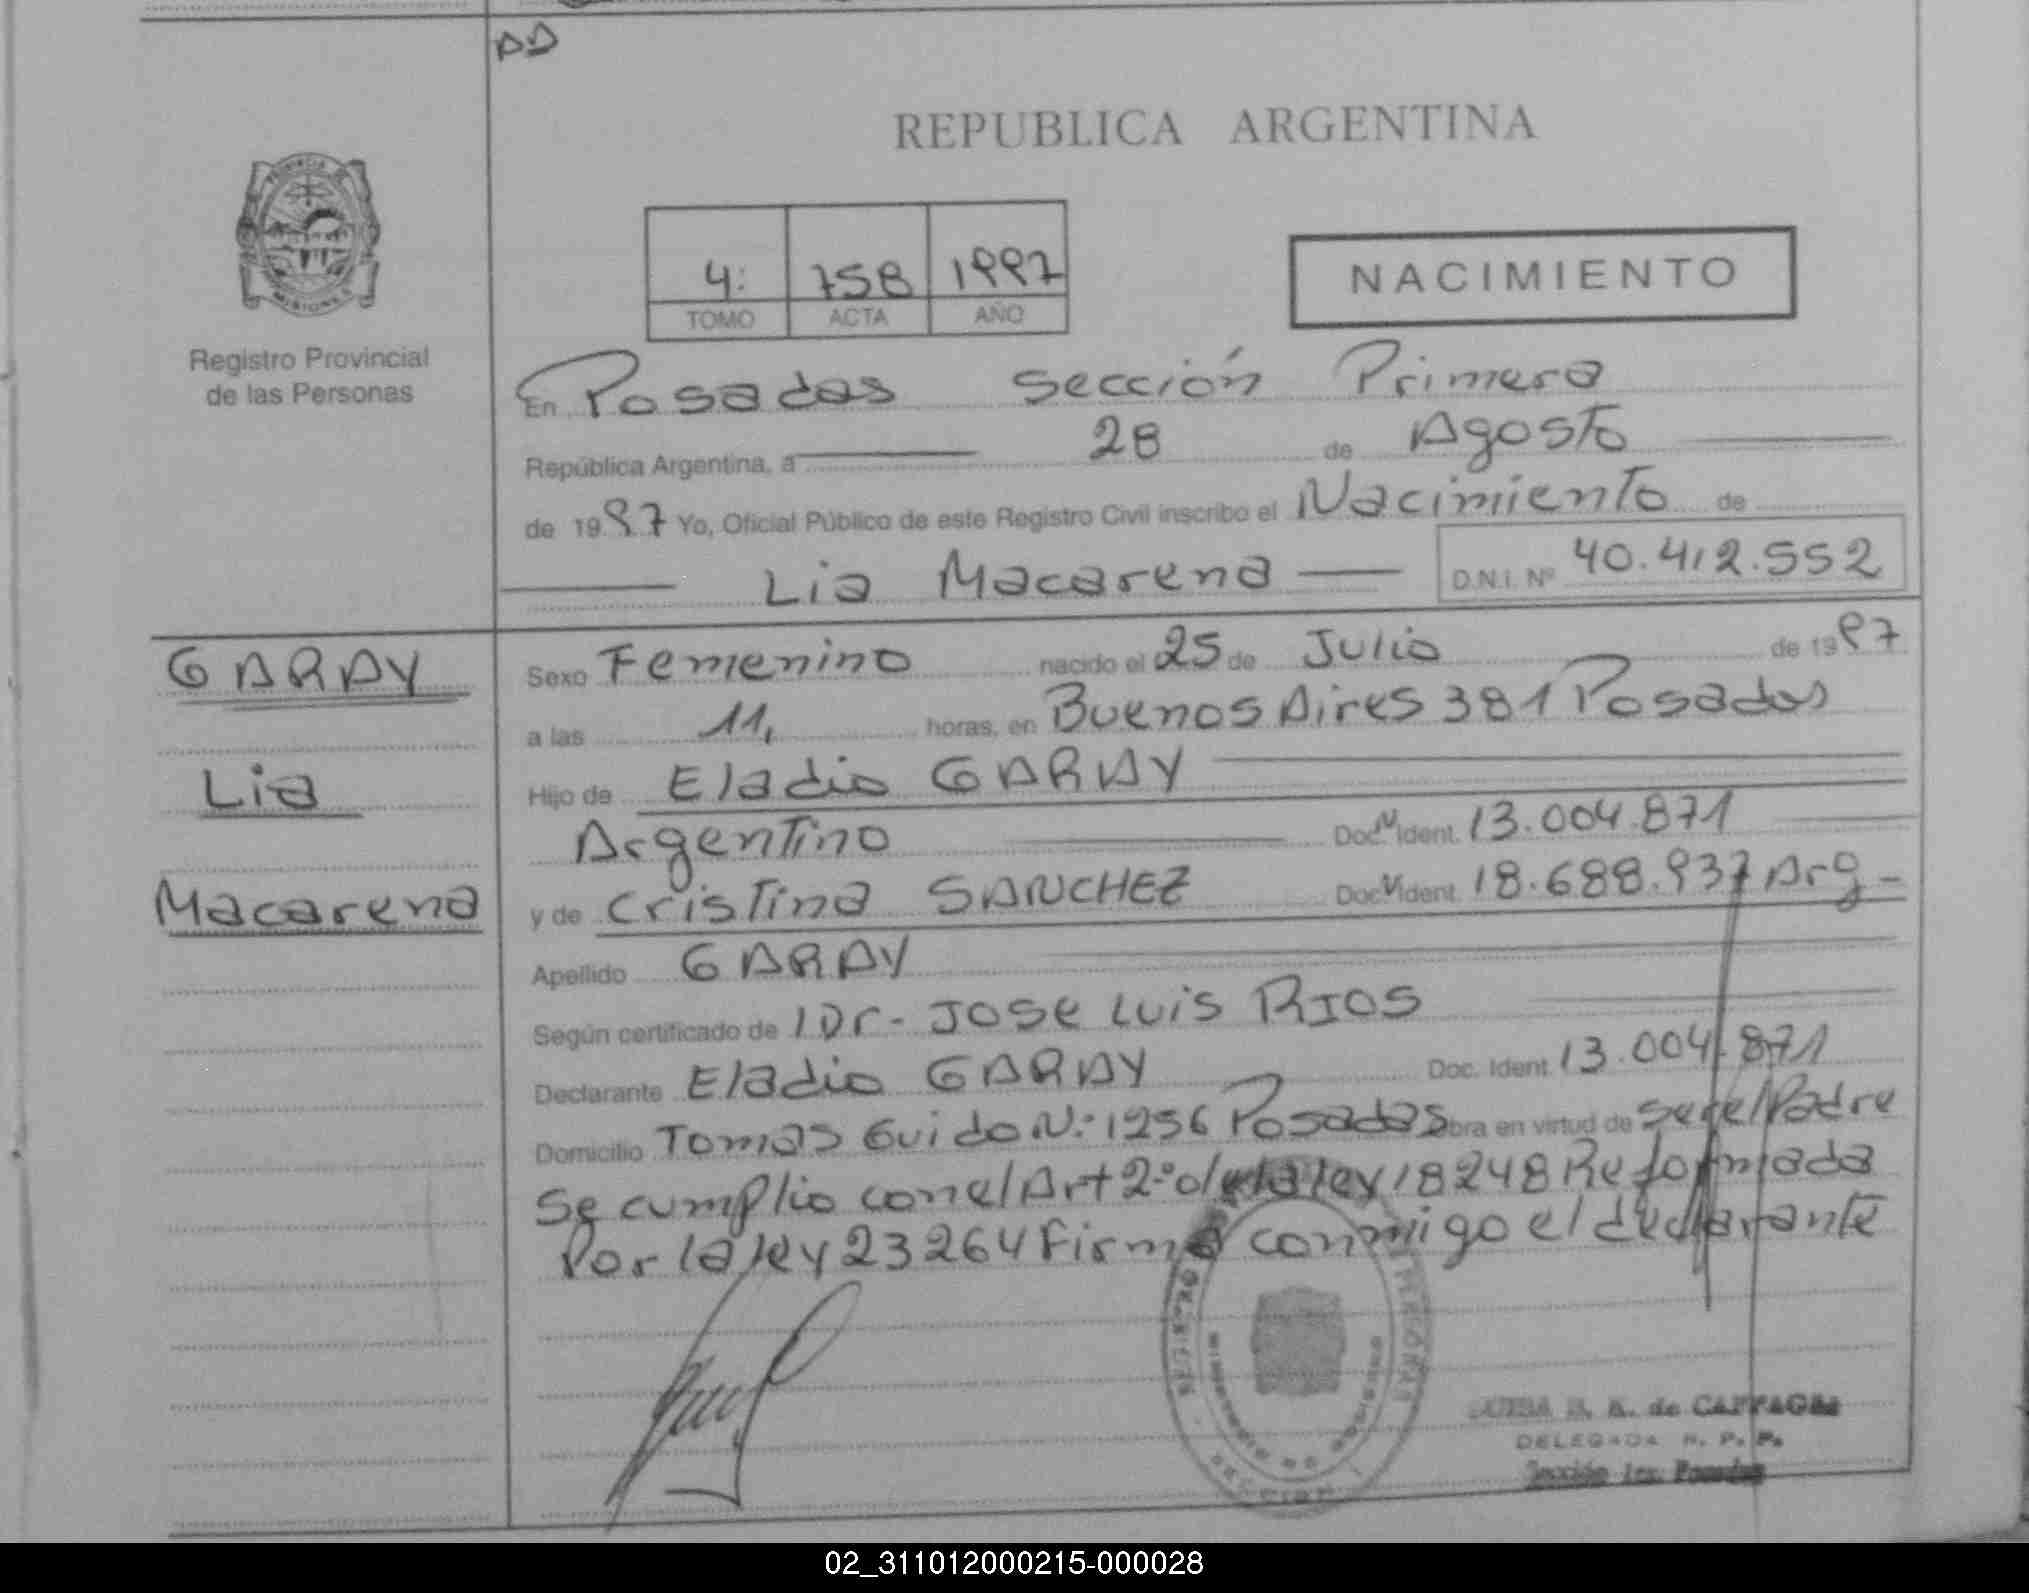 DD
REPUBLICA ARGENTINA
PROVINCIA DE
MISIONES
Registro Provincial
de las Personas
4: 758 1997
TOMO ACTA AÑO
NACIMIENTO
En Posadas Sección Primera
República Argentina, a 28 de Agosto
de 1997 Yo, Oficial Público de este Registro Civil inscribo el Nacimiento de
Lia Macarena D.N.I. Nº 40.412.552
GARAY
Lia
Macarena
Sexo Femenino nacido el 25 de Julio de 1997
a las 11, horas, en Buenos Aires 381 Posadas
Hijo de Eladio GARAY
Argentino Doc. N Ident. 13.004.871
y de Cristina SANCHEZ Doc. N Ident. 18.688.937 Arg-
Apellido GARAY
Según certificado de Dr- JOSE LUIS RIOS
Declarante Eladio GARAY Doc. Ident. 13.004.871
Domicilio Tomas Guido N:1256 Posadas obra en virtud de ser el Padre
Se cumplio con el Art 2º de la ley 18248 Reformada
Por la ley 23264 Firma conmigo el declarante
de CAFFAGNI
DELEGADA R. P. P.
Sección 1ra. Posadas
02_311012000215-000028